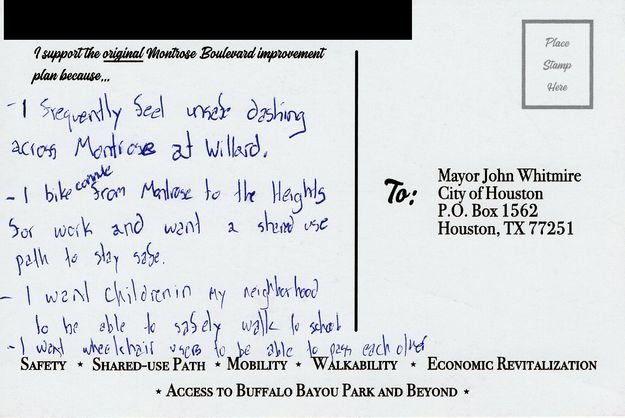 I support the original Montrose Boulevard improvement
plan because...
- I frequently feel unsafe dashing
across Montrose at Willard.
- I bike commute from Montrose to the Heights
for work and want a shared use
path to stay safe.
- I want children in my neighborhood
to be able to safely walk to school
- I want wheelchair users to be able to pass each other
Place
Stamp
Here
To:
Mayor John Whitmire
City of Houston
P.O. Box 1562
Houston, TX 77251
Safety ★ Shared-use Path ★ Mobility ★ Walkability ★ Economic Revitalization
★ Access to Buffalo Bayou Park and Beyond ★